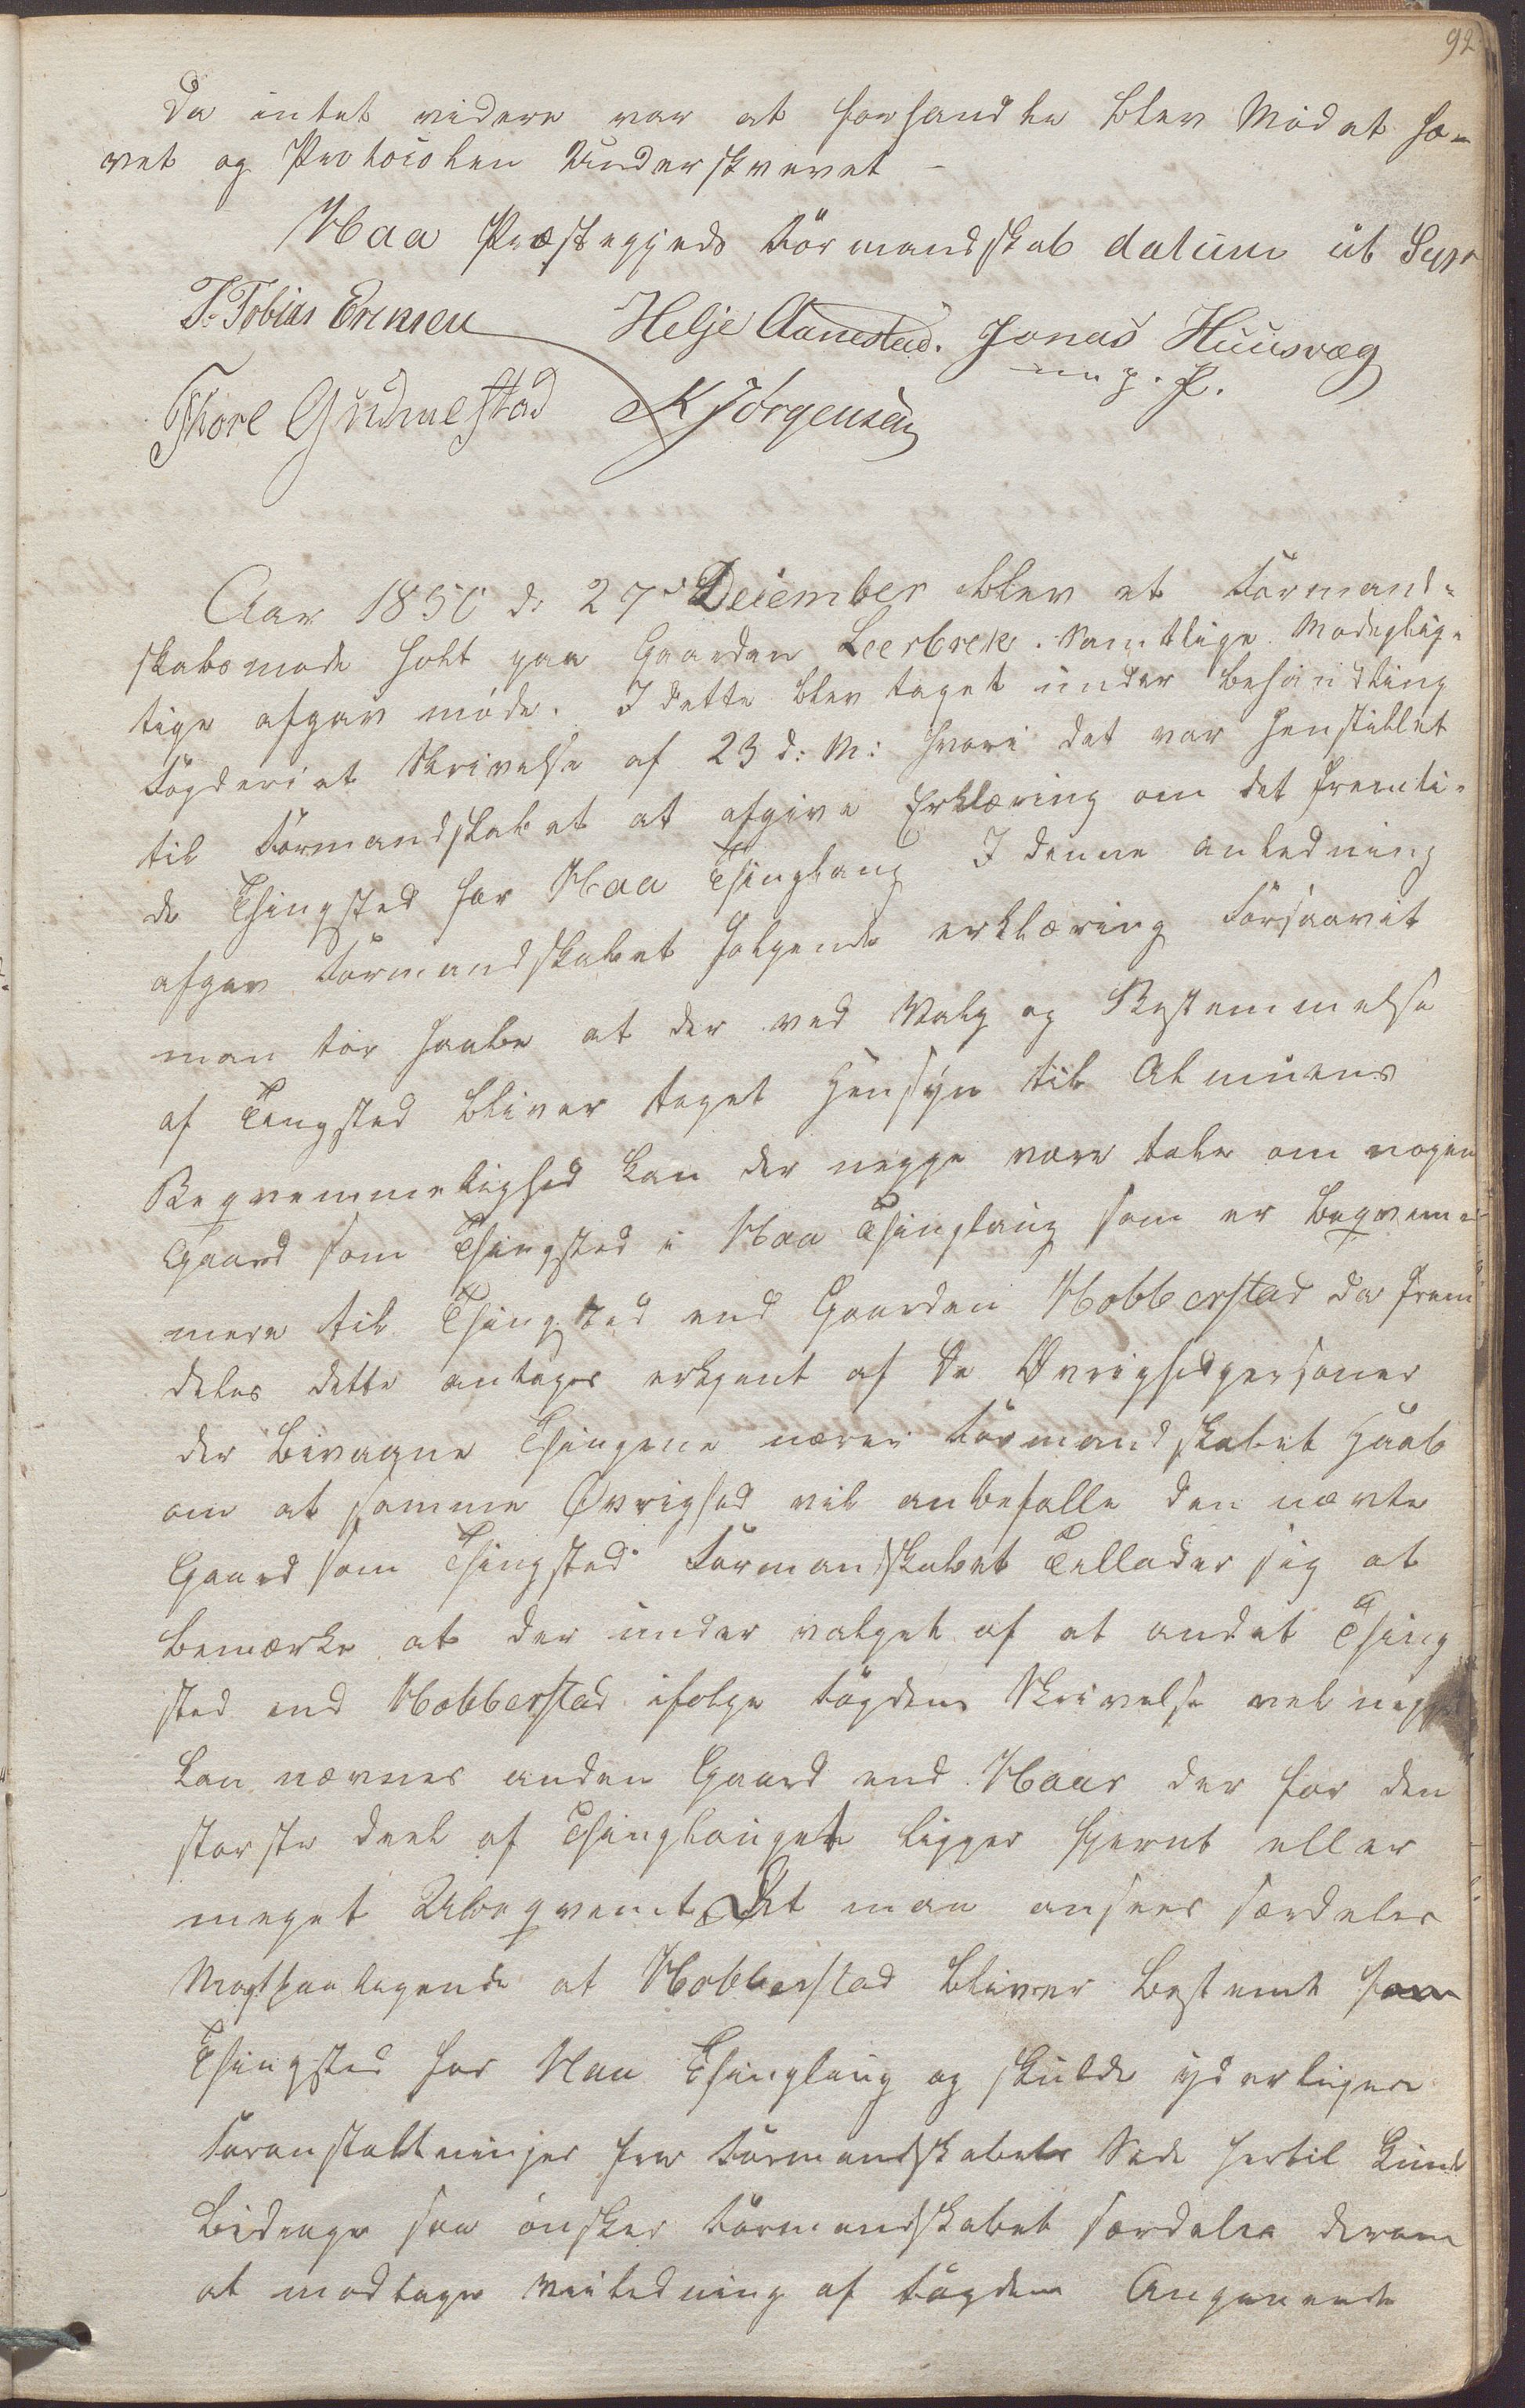 92
Da intet videre var at forhandle blev Mødet hæ-
vet og Protocolen Underskrevet -
Haa Præstegjeds Formandskab datum ut Supr
T. Tobias Evensen Helje Aanestad. Jonas Huusvæg
m. p. P.
Thore Gudmestad K Jörgensen
Aar 1850 d: 27de December blev et Formand-
skabsmøde holt paa Gaarden Leerbrek. Samtlige Mødeplig-
tige afgav møde. I dette blev taget under behandling
Fogderiet Skrivelse af 23 d: M: hvori det var henstillet
til Formandskabet at afgive Erklæring om det fremti-
de Thingsted for Haa Thinglaug I denne anledning
afgav Formandskabet følgende erklæring Forsaavit
man tør haabe at der ved Valg og Bestemmelse
af Tingsted bliver taget Hensyn til Almuens
Beqvemmelighed kan der neppe være tale om nogen
Gaard som Thingsted i Haa Thinglaug som er beqvem-
mere til Thingsted end Gaarden Hobberstad da frem
deles dette antages erkjent af de Øvrighedpersoner
der bivaane Thingene nærer Formandskabet Haab
om at samme Øvrighed vil anbefalle den nævte
Gaard som Thingsted. Formandskabet Tellader sig at
bemærke at der under valget af et andet Thing
sted end Hobberstad ifølge Fogdens Skrivelse vel neppe
kan nævnes anden Gaard end Haar der for den
største deel af Thinglauget ligger fjernt eller
meget Ubeqvemt. At man ansees særdeles
Magtpaaligende at Hobberstad bliver bestemt som
Thingsted for Haa Thinglaug og skulde yderligere
Foranstaltninger fra Formandskabets Side hertil kunde
bidrage saa ønsker Formandskabet særdeles derom
at modtage Veiledning af Fogden Angaaende